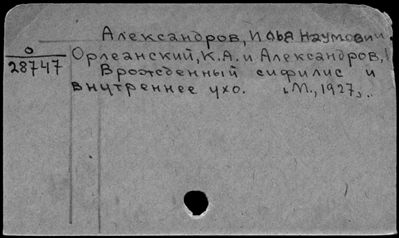 Александров, Илья Наумович
О
28747
Орлеанский, К.А. и Александров,
Врожденный сифилис и
внутреннее ухо. М., 1927,..